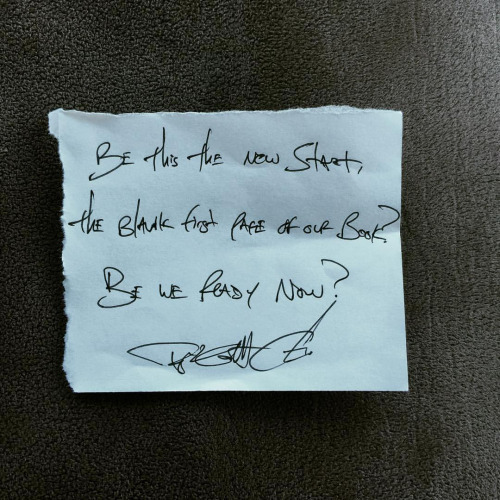 Be this the now Start,
the Blank first Page of our Book?
Be we Ready Now?